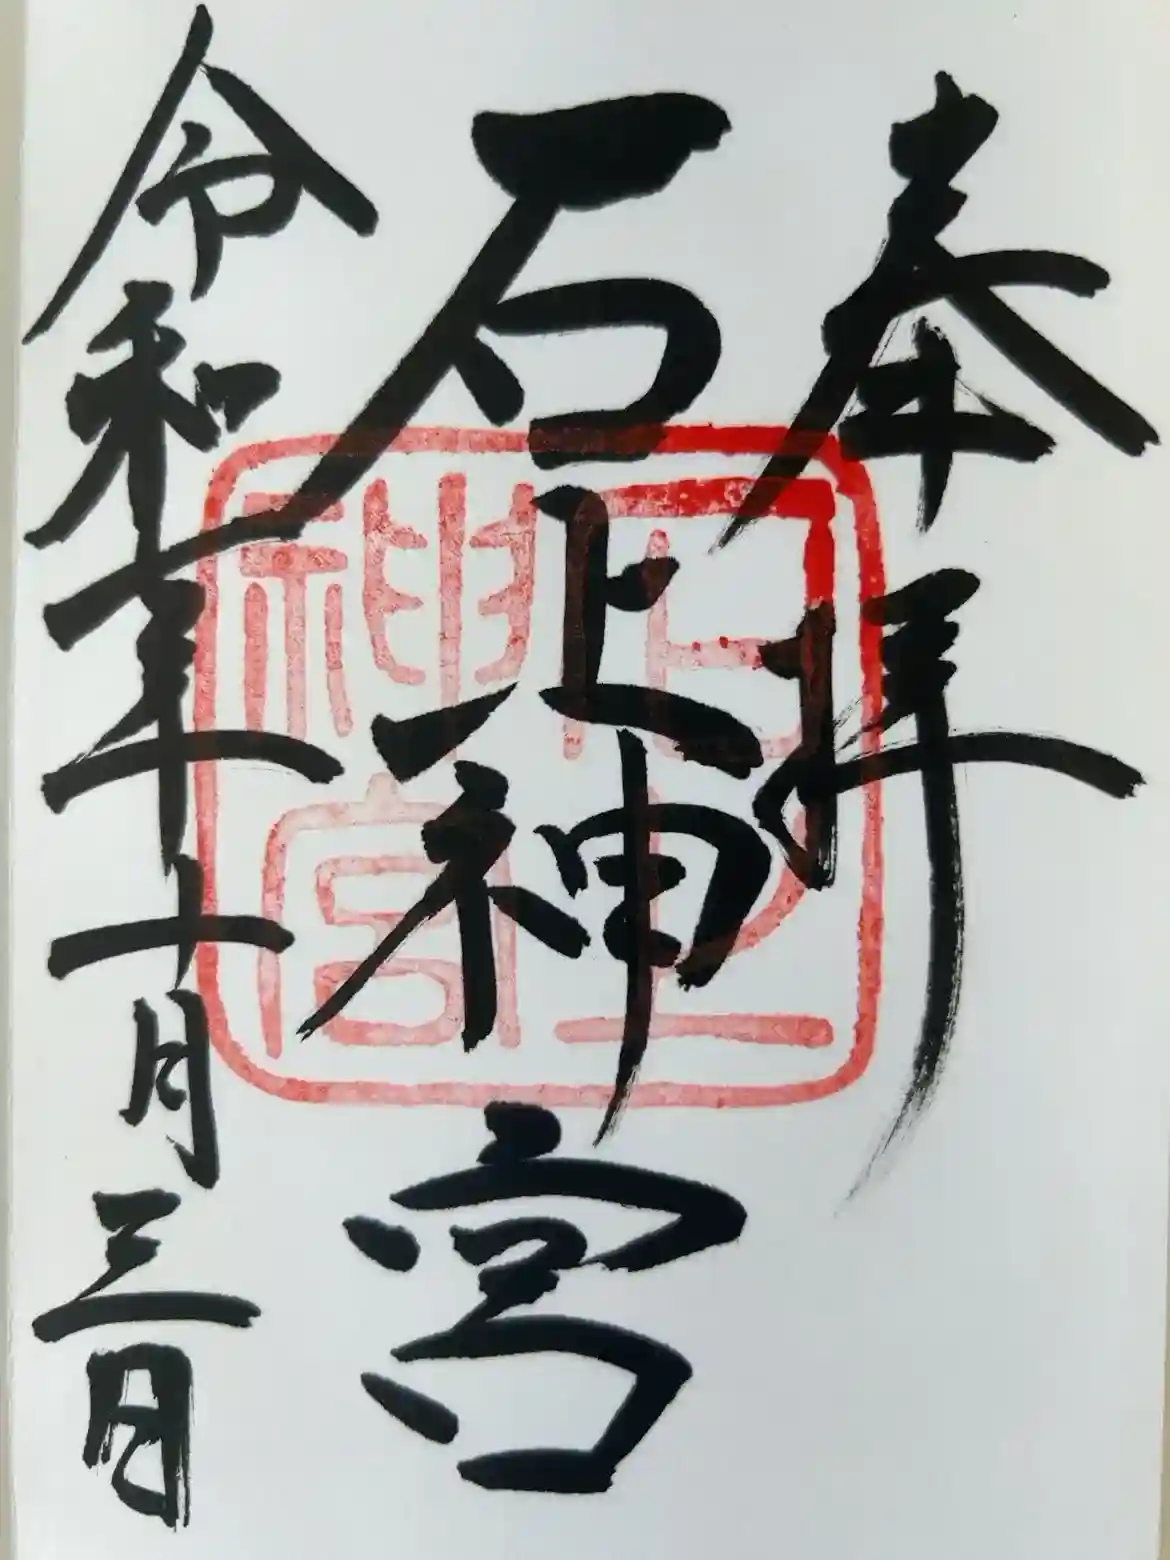 奉拝
石上神宮
令和年十月三日
石上
神宮